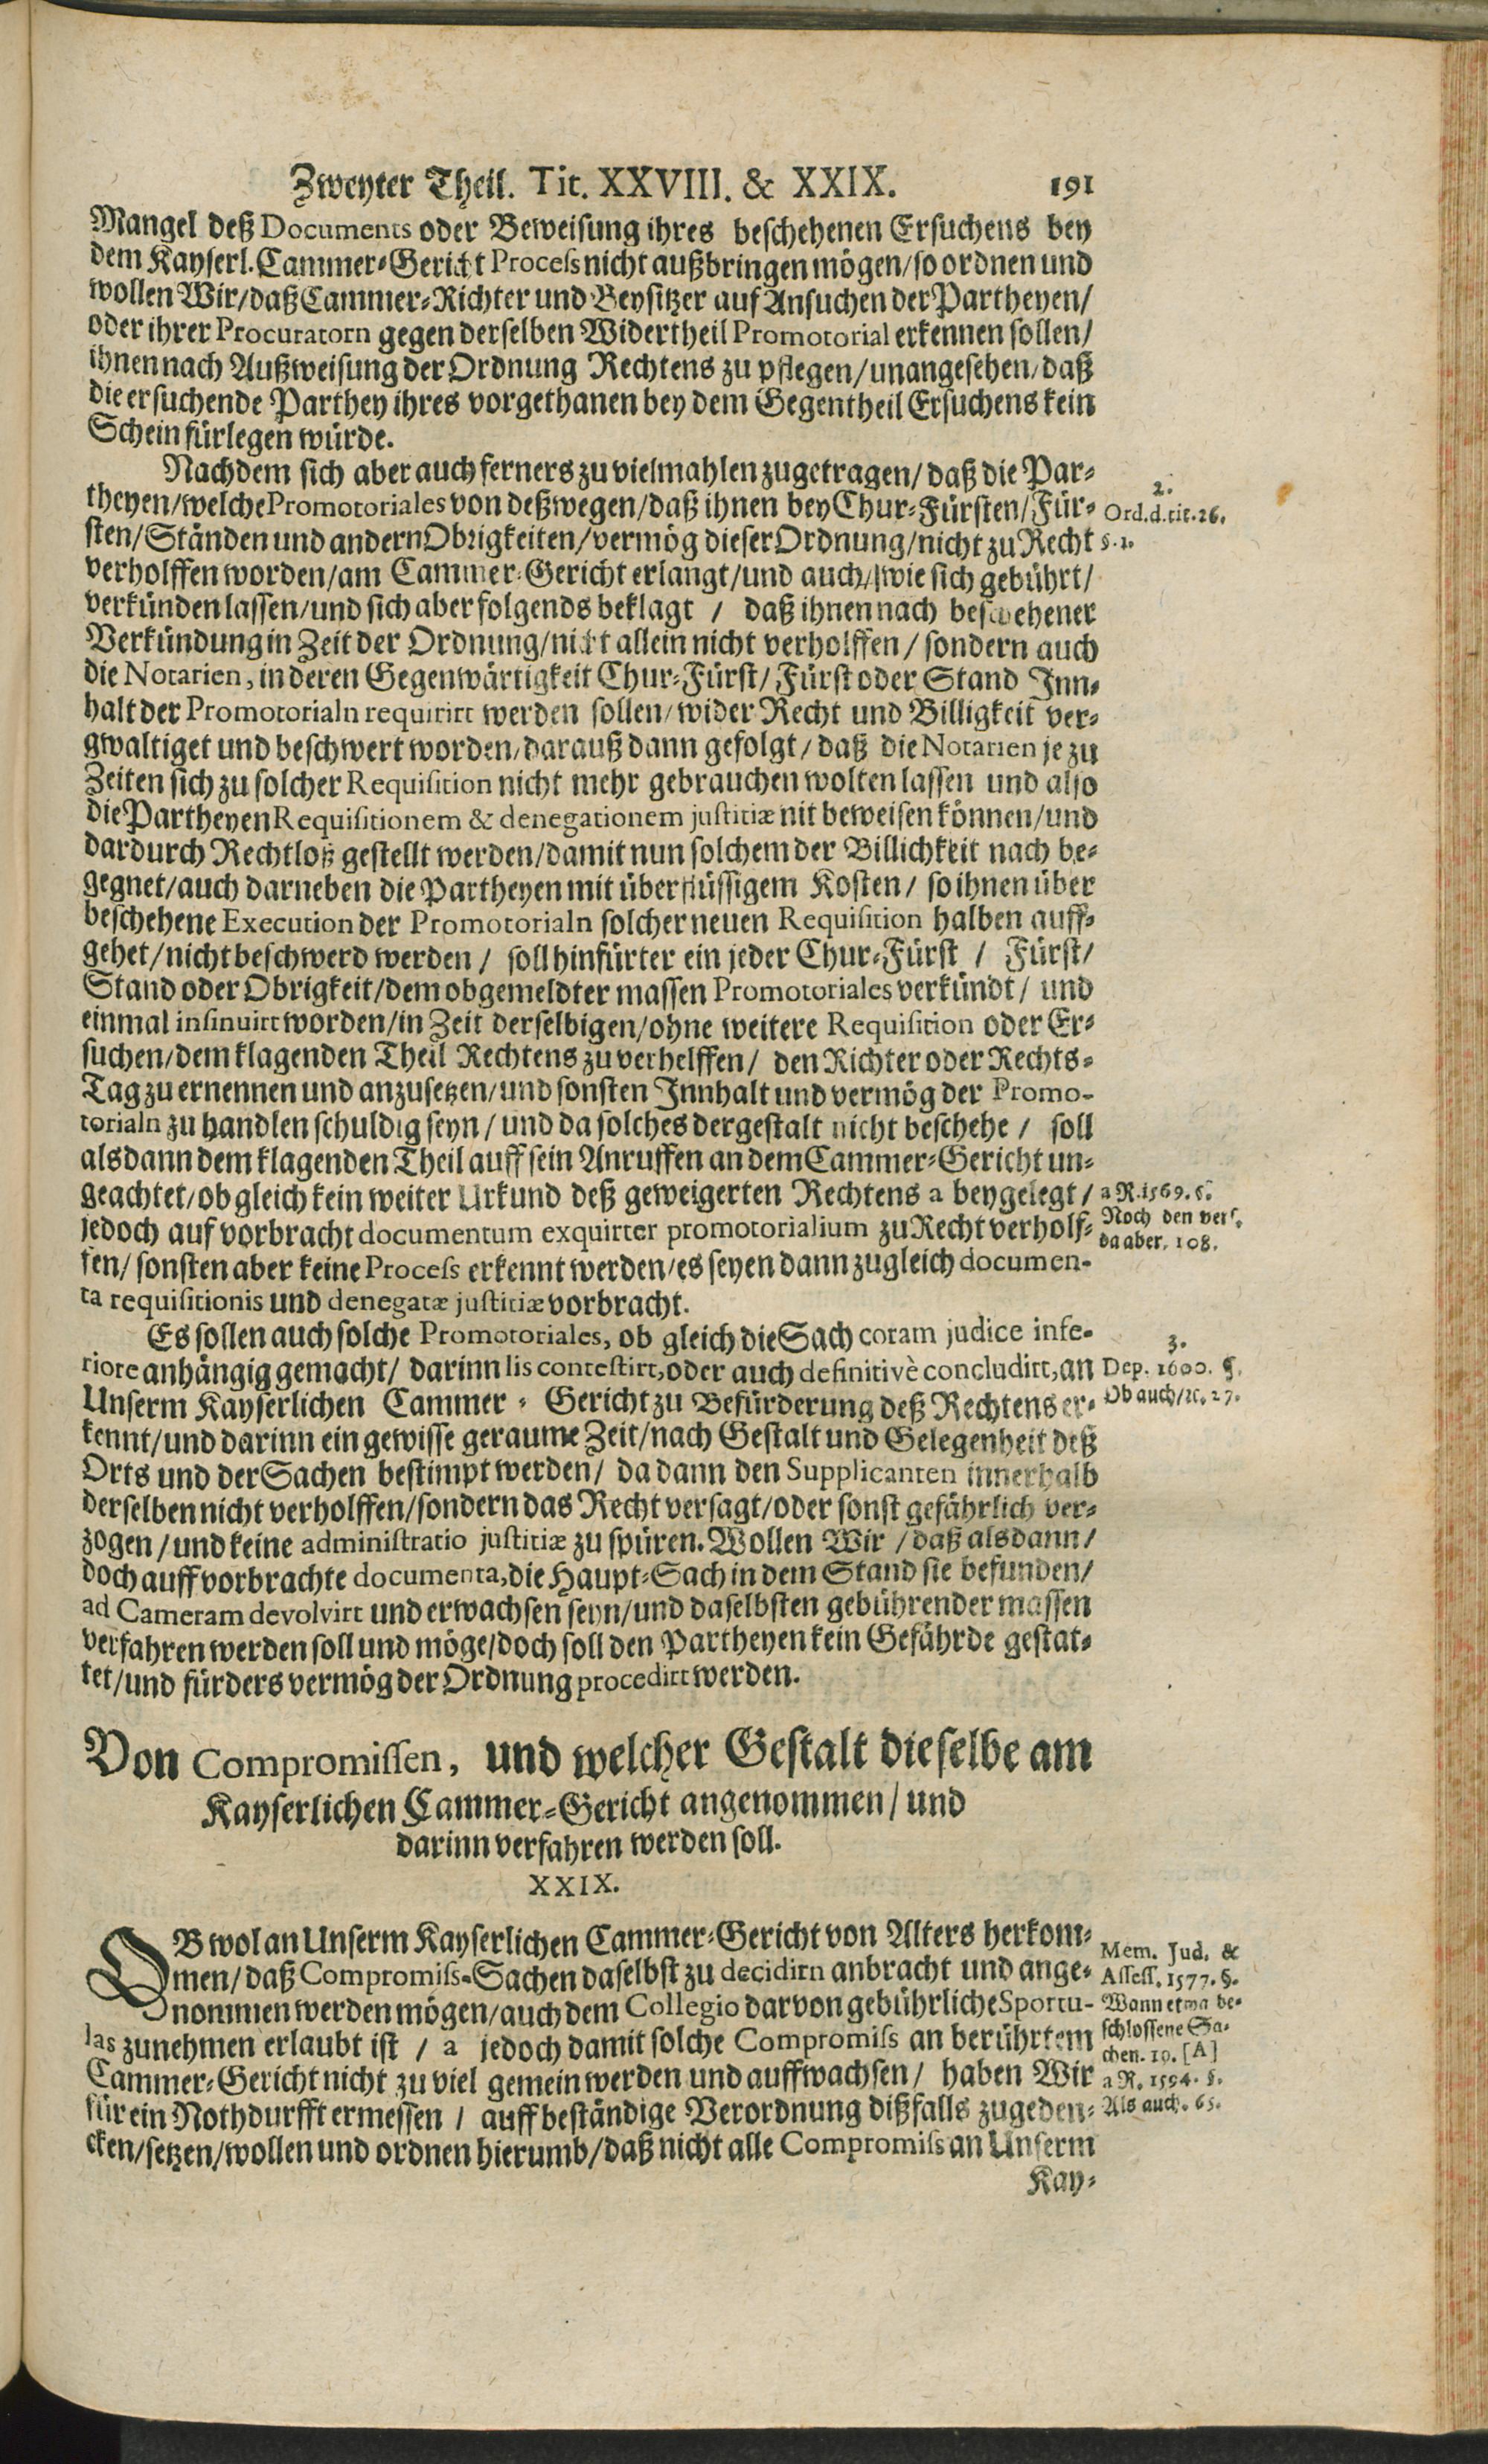 Zweyter Theil. Tit. XXVIII. & XXIX. 191
Mangel deß Documents oder Beweisung ihres beschehenen Ersuchens bey
dem Kayserl. Cammer-Gericht Process nicht außbringen mögen/ so ordnen und
wollen Wir/ daß Cammer-Richter und Beysitzer auf Ansuchen der Partheyen/
oder ihrer Procuratorn gegen derselben Widertheil Promotorial erkennen sollen/
ihnen nach Außweisung der Ordnung Rechtens zu pflegen/ unangesehen/ daß
die ersuchende Parthey ihres vorgethanen bey dem Gegentheil Ersuchens kein
Schein fürlegen würde.
Nachdem sich aber auch ferners zu vielmahlen zugetragen/ daß die Par-
theyen/ welche Promotoriales von deßwegen/ daß ihnen bey Chur-Fürsten/ Für-
sten/ Ständen und andern Obrigkeiten/ vermög dieser Ordnung/ nicht zu Recht
verholffen worden/ am Cammer-Gericht erlangt/ und auch/ wie sich gebührt/
verkünden lassen/ und sich aber folgends beklagt / daß ihnen nach beschehener
Verkündung in Zeit der Ordnung/ nicht allein nicht verholffen/ sondern auch
die Notarien, in deren Gegenwärtigkeit Chur-Fürst/ Fürst oder Stand Inn-
halt der Promotorialn requirirt werden sollen/ wider Recht und Billigkeit ver-
gwaltiget und beschwert worden/ darauß dann gefolgt/ daß die Notarien je zu
Zeiten sich zu solcher Requisition nicht mehr gebrauchen wolten lassen und also
die Partheyen Requisitionem & denegationem justitiæ nit beweisen können/ und
dardurch Rechtloß gestellt werden/ damit nun solchem der Billichkeit nach be-
gegnet/ auch darneben die Partheyen mit überflüssigem Kosten/ so ihnen über
beschehene Execution der Promotorialn solcher neuen Requisition halben auff-
gehet/ nicht beschwerd werden / soll hinfürter ein jeder Chur-Fürst / Fürst/
Stand oder Obrigkeit/ dem obgemeldter massen Promotoriales verkündt/ und
einmal insinuirt worden/ in Zeit derselbigen/ ohne weitere Requisition oder Er-
suchen/ dem klagenden Theil Rechtens zu verhelffen/ den Richter oder Rechts-
Tag zu ernennen und anzusetzen/ und sonsten Innhalt und vermög der Promo-
torialn zu handlen schuldig seyn/ und da solches dergestalt nicht beschehe / soll
alsdann dem klagenden Theil auff sein Anruffen an dem Cammer-Gericht un-
geachtet/ ob gleich kein weiter Urkund deß geweigerten Rechtens a beygelegt/
jedoch auf vorbracht documentum exquirter promotorialium zu Recht verholf-
fen/ sonsten aber keine Process erkennt werden/ es seyen dann zugleich documen-
ta requisitionis und denegatæ justitiæ vorbracht.
Es sollen auch solche Promotoriales, ob gleich die Sach coram judice infe-
riore anhängig gemacht/ darinn lis contestirt, oder auch definitivè concludirt, an
Unserm Kayserlichen Cammer-Gericht zu Befürderung deß Rechtens er-
kennt/ und darinn ein gewisse geraume Zeit/ nach Gestalt und Gelegenheit deß
Orts und der Sachen bestimpt werden/ da dann den Supplicanten innerhalb
derselben nicht verholffen/ sondern das Recht versagt/ oder sonst gefährlich ver-
zogen/ und keine administratio justitiæ zu spüren. Wollen Wir / daß alsdann/
doch auff vorbrachte documenta, die Haupt-Sach in dem Stand sie befunden/
ad Cameram devolvirt und erwachsen seyn/ und daselbsten gebührender massen
verfahren werden soll und möge/ doch soll den Partheyen kein Gefährde gestat-
tet/ und fürders vermög der Ordnung procedirt werden.
2.
Ord. d. tit. 26.
§. 1.
a R. 1569. §.
Noch den vers.
da aber. 108.
3.
Dep. 1600. §.
Ob auch/ ꝛc. 27.
Von Compromissen, und welcher Gestalt dieselbe am
Kayserlichen Cammer-Gericht angenommen/ und
darinn verfahren werden soll.
XXIX.
OB wol an Unserm Kayserlichen Cammer-Gericht von Alters herkom-
men/ daß Compromiss-Sachen daselbst zu decidirn anbracht und ange-
nommen werden mögen/ auch dem Collegio darvon gebührliche Sportu-
las zunehmen erlaubt ist / a jedoch damit solche Compromiss an berührtem
Cammer-Gericht nicht zu viel gemein werden und auffwachsen/ haben Wir
für ein Nothdurfft ermessen / auff beständige Verordnung dißfalls zugeden-
cken/ setzen/ wollen und ordnen hierumb/ daß nicht alle Compromiss an Unserm
Kay-
Mem. Jud. &
Assess. 1577. §.
Wann etwa be-
schlossene Sa-
chen. 19. [A]
a R. 1594. §.
Als auch. 65.